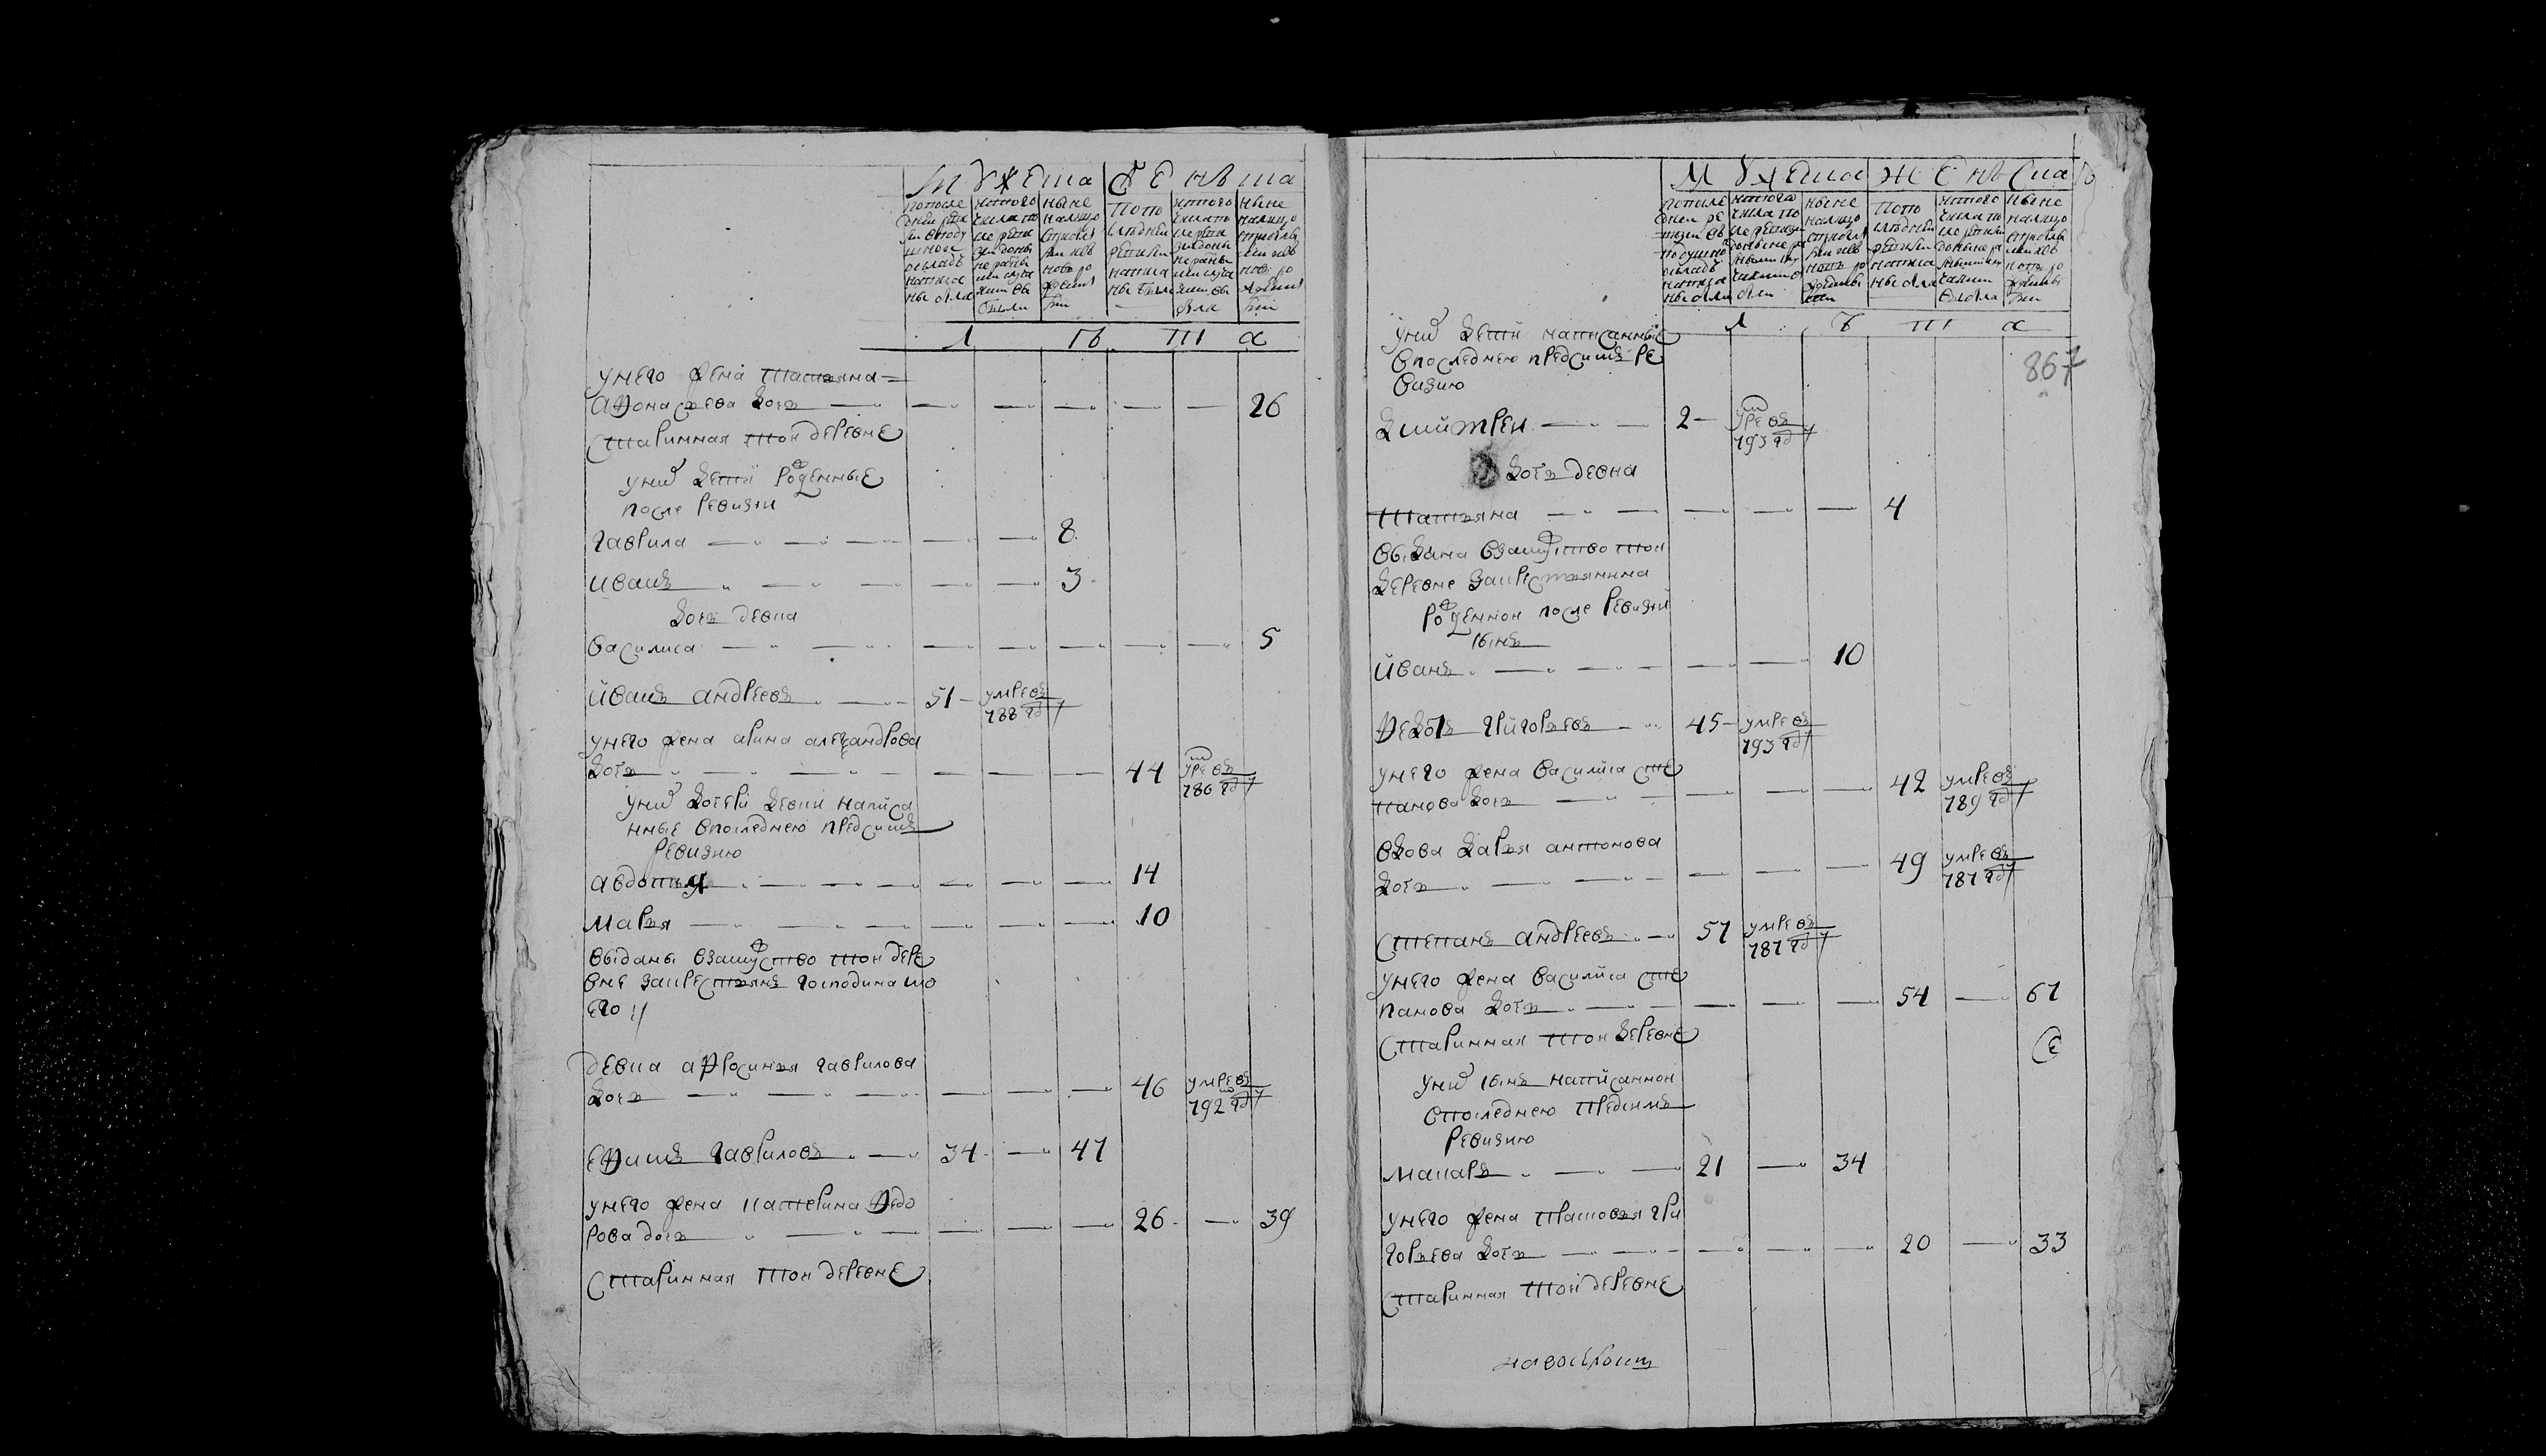 Мужеска Женска
лѣта
у него жена татьяна
афонасьева дочь 26
старинная той деревне
у них дети рожденные
после ревизи
гаврила 8
иванъ 3
дочь девка
василиса 5
иванъ андреевъ 51 умре въ
788 году
у него жена арина александрова
дочь 44 умре въ
786 году
у них дочери девки написа
нные в последнею пред сим
ревизию
авдотья 14
марья 10
выданы в замужство той дере
вне за крестьянъ господина мо
его
девка афросинья гаврилова
дочь 46 умре въ
792 году
ефимъ гавриловъ 34 47
у него жена катерина федо
рова дочь 26 39
старинная той деревне
Мужеска Женска
лѣта
867
у них дети написанные
в последнею пред симъ ре
визию
дмитреи 2 умре въ
793 году
дочь девка
татьяна 4
выдана в замужство той
деревне за крестьянина
рожденной после ревизии
сынъ
иванъ 10
федотъ григорьевъ 45 умре въ
793 году
у него жена василиса сте
панова дочь 42 умре въ
789 году
вдова дарья антонова
дочь 49 умре въ
787 году
степанъ андреевъ 57 умре въ
787 году
у него жена василиса сте
панова дочь 54 67
старинная той деревне
у них сынъ написанной
в последнею пред симъ
ревизию
макаръ 21 34
у него жена прасковья гри
горьева дочь 20 33
старинная той деревне